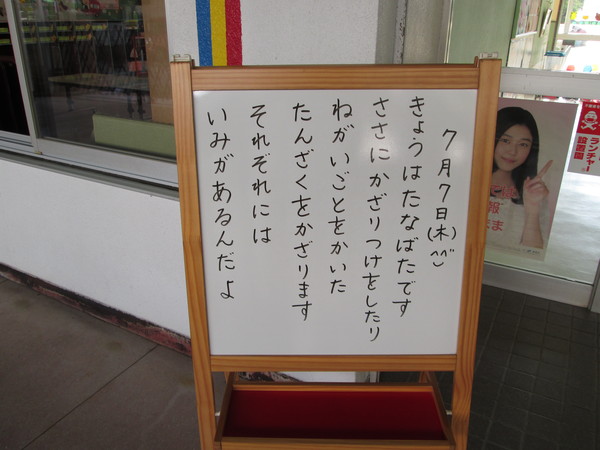 7月7日(木)^^
きょうはたなばたです
ささにかざりつけをしたり
ねがいごとをかいた
たんざくをかざります
それぞれには
いみがあるんだよ
ランチャー
設置園
報
ま